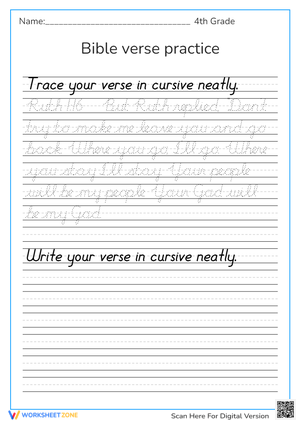 Name:________________________________ 4th Grade
Bible verse practice
Trace your verse in cursive neatly.
Ruth 1:16 But Ruth replied Don't
try to make me leave you and go
back Where you go I'll go Where
you stay I'll stay Your people
will be my people Your God will
be my God
Write your verse in cursive neatly.
WORKSHEETZONE
Scan Here For Digital Version